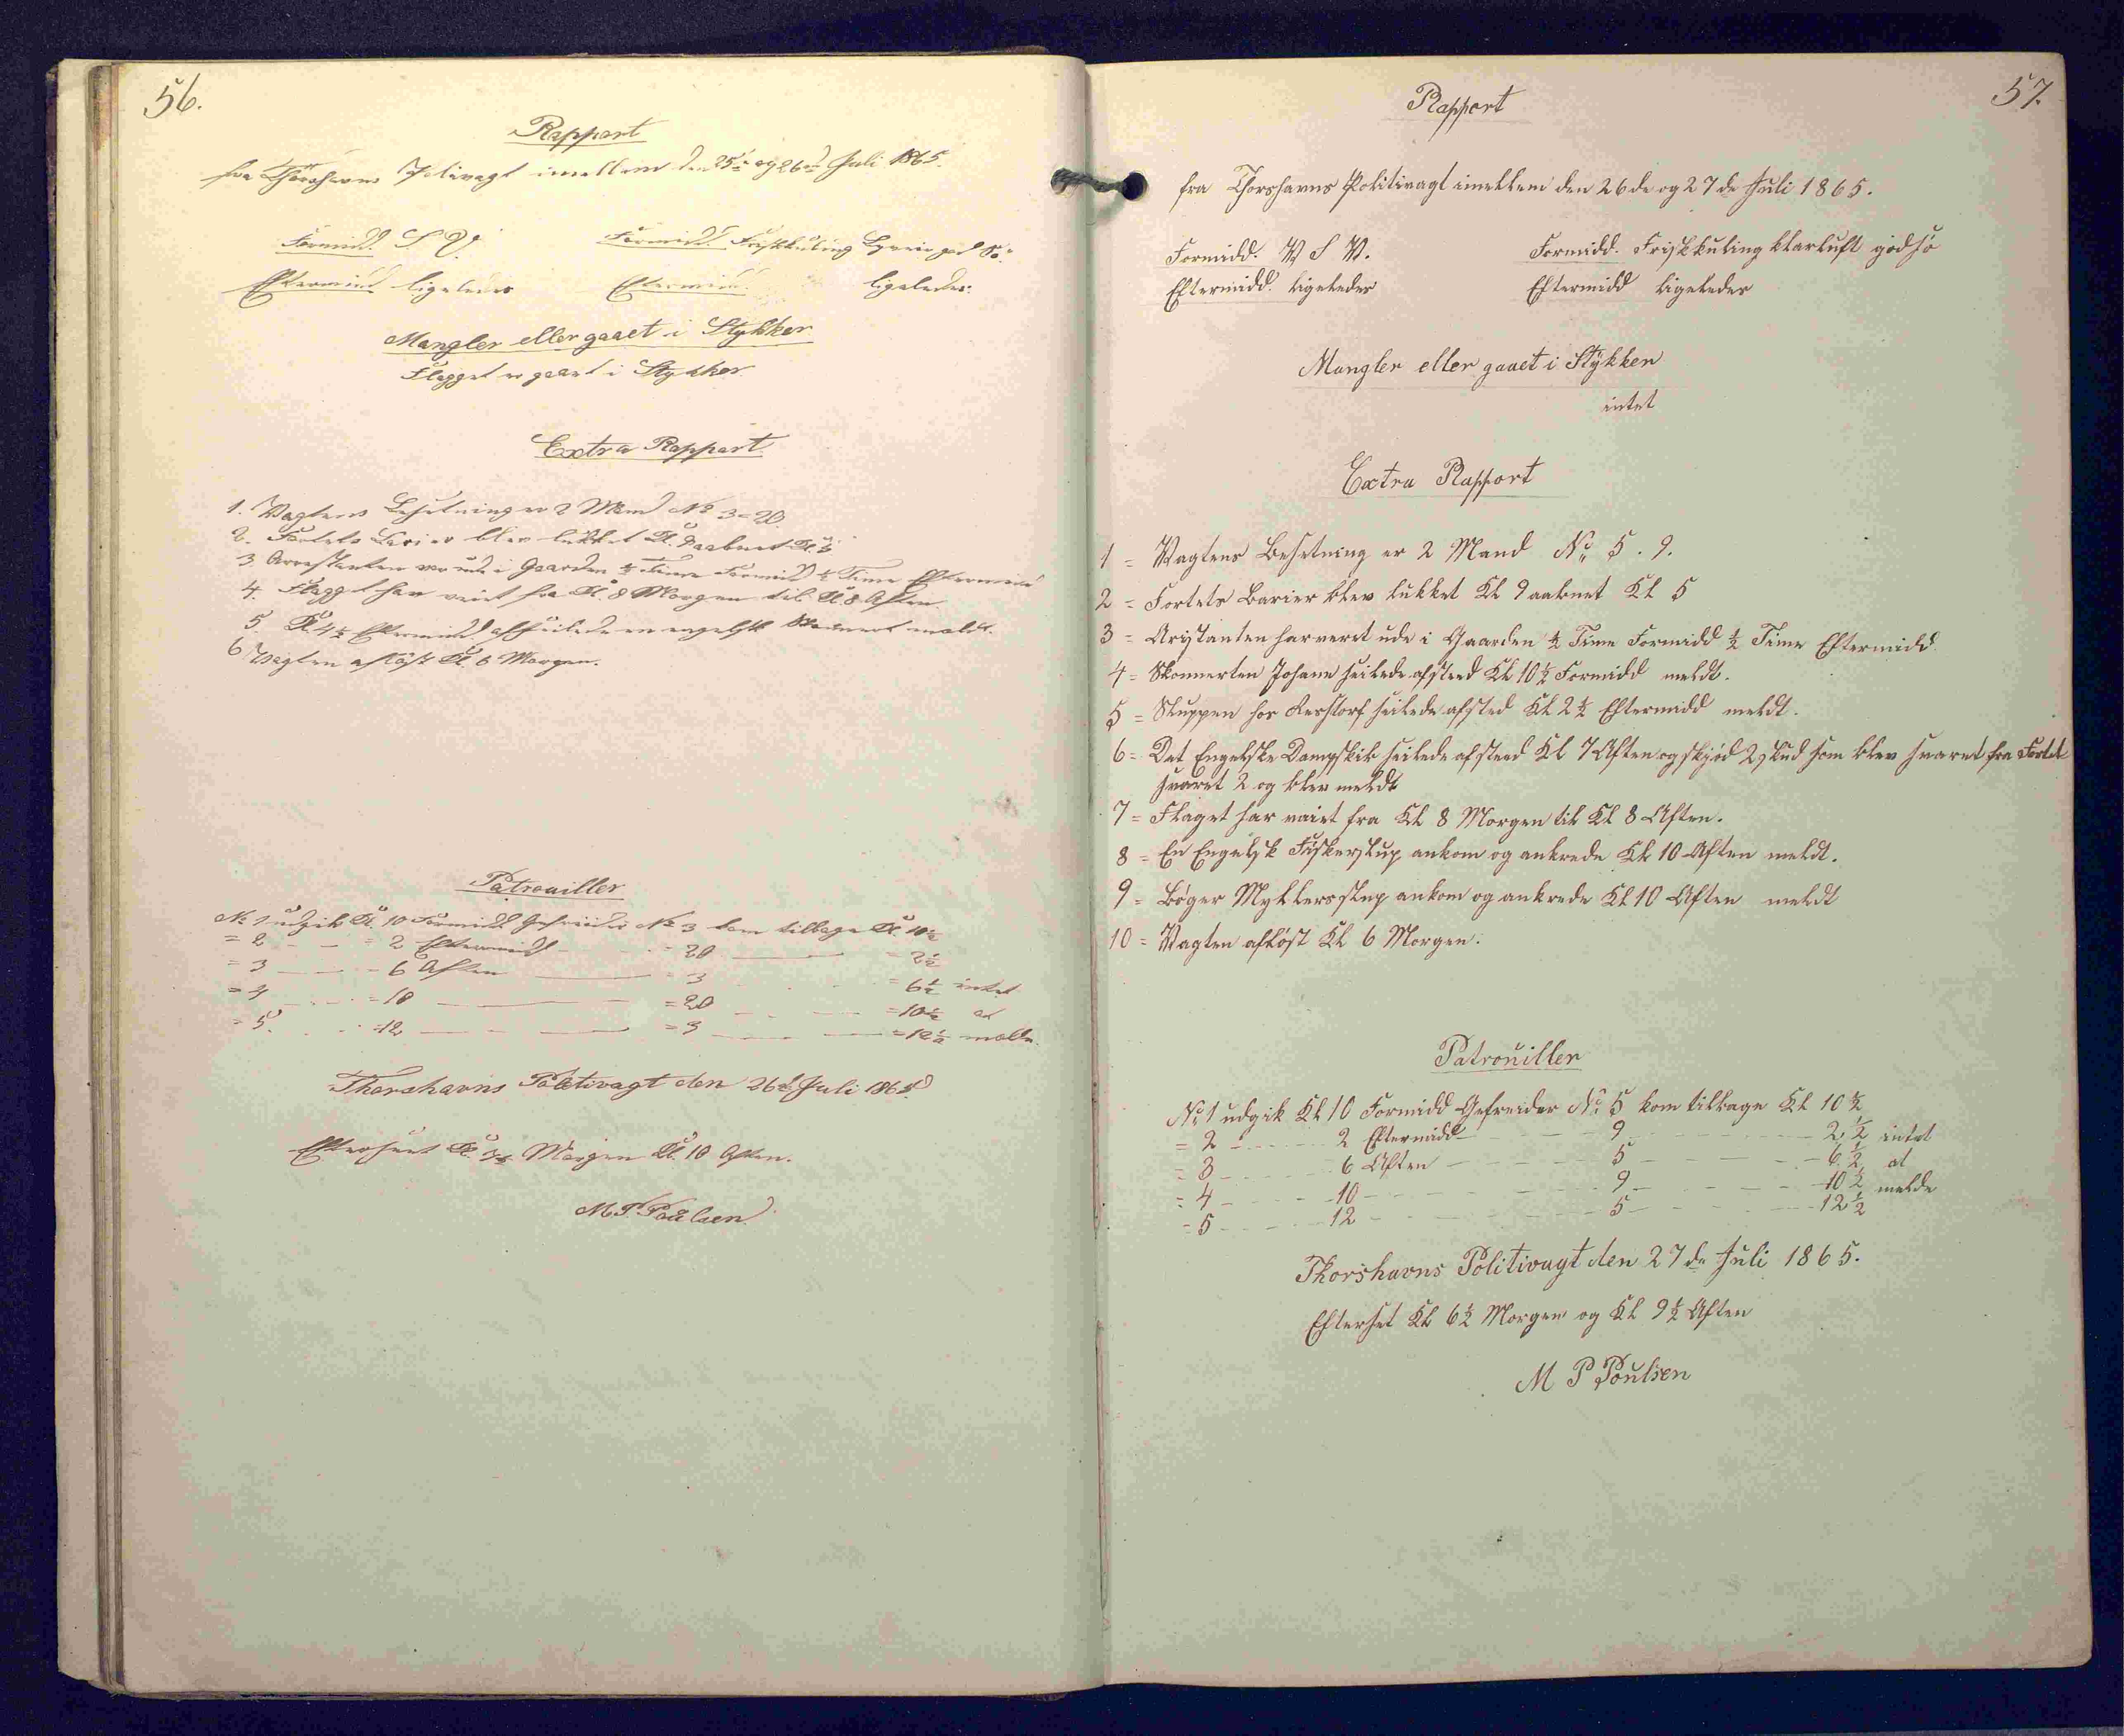 56.
Rapport
fra Thorshavns Politivagt imellem den 25de og 26de Juli 1865.
Formidd. S V. Formidd. Friskkuling god Sö.
Eftermidd ligeledes Eftermidd. ligeledes.
Mangler eller gaaet i Stykker
Flagget er gaaet i Stykker
Extra Rapport
1. Vagtens Besetning er 2 Mand No 3=20.
2. Fortets Barier blev lukket Kl. 9 aabnet Kl. 5
3 Arrestanten var ude i Gaarden ½ Time Formidd ½ Time Eftermidd
4. Flagget har vaiet fra Kl. 8 Morgen til Kl 8 Aften.
5. Kl. 4½ Eftermidd afseilede en engelsk Skonnert meldt.
6 Vagten aflöst Kl. 6 Morgen.
Patrouiller
No 1 udgik Kl. 10 Formidd Gefreider No 3 kom tilbage Kl. 10½
= 2 = 2 Eftermidd = 20 = 2½
= 3 - 6 Aften = 3 = 6½ intet
= 4 =10 =20 =10½ at
= 5. =12 =3 =12½ melde.
Thorshavns Politivagt den 26de Juli 1865.
Efterseet Kl. Morgen Kl. 10 Aften.
M. P. Poulsen
57.
Rapport
fra Thorshavns Politivagt imellem den 26de og 27de Juli 1865.
Formidd. V S V. Formidd. Friskkuling klarluft god sö
Eftermidd. ligeledes Eftermidd ligeledes
Mangler eller gaaet i Stykker
intet
Extra Rapport
1 = Vagtens Besetning er 2 Mand No 5. 9.
2 = Fortets Barier blev lukket Kl 9 aabnet Kl 5
3 = Aristanten har veret ude i Gaarden ½ Time Formidd ½ Time Eftermidd.
4 = Skonnerten Johane seilede afsteed Kl 10½ Formidd meldt.
5 = Sluppen hos seilede afsted Kl 2½ Eftermidd meldt.
6 = Det Engelske Dampskib seilede afsteed Kl 7 Aften og skjöd 2 skud som blev svaret fra Fortet
svaret 2 og blev meldt
7 = Flaget har vaiet fra Kl 8 Morgen til Kl 8 Aften.
8 = En Engelsk Fiskerslup ankom og ankrede Kl 10 Aften meldt.
9 = Böger Myllersslup ankom og ankrede Kl 10 Aften meldt
10 = Vagten aflöst Kl 6 Morgen.
Patrouiller
No 1 udgik Kl 10 Formidd Gefreider No 5 kom tilbage Kl 10½
= 2 2 Eftermidd 9 2½ intet
= 3 6 Aften 5 6½ at
= 4 10 9 10½ melde
= 5 12 5 12½
Thorshavns Politivagt den 27de Juli 1865.
Efterset Kl 6½ Morgen og Kl 9½ Aften
M P Poulsen